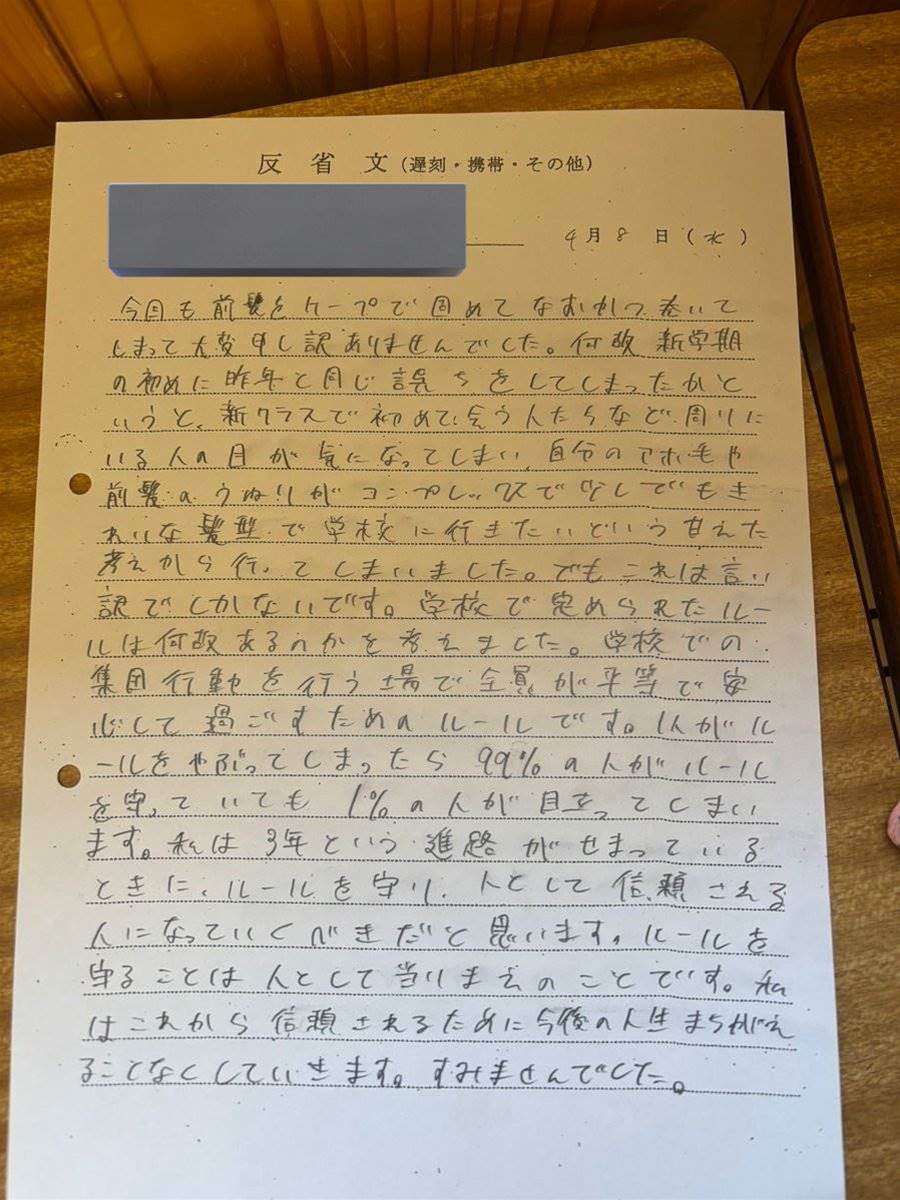 反省文（遅刻・携帯・その他）
4月8日(水)
今回も前髪をケープで固めてなおかつ巻いて
しまって大変申し訳ありませんでした。何故新学期
の初めに昨年と同じ誤ちをしてしまったかと
いうと、新クラスで初めて会う人たちなど周りに
いる人の目が気になってしまい、自分のアホ毛や
前髪のうねりがコンプレックスで少しでもき
れいな髪型で学校に行きたいという甘えた
考えから行ってしまいました。でもこれは言い
訳でしかないです。学校で定められたルー
ルは何故あるのかを考えました。学校での
集団行動を行う場で全員が平等で安
心して過ごすためのルールです。1人がル
ールをやぶってしまったら99%の人がルール
を守っていても1%の人が目立ってしまい
ます。私は3年という進路がせまっている
ときに、ルールを守り、人として信頼される
人になっていくべきだと思います。ルールを
守ることは人として当りまえのことです。私
はこれから信頼されるために今後の人生まちがえ
ることなくしていきます。すみませんでした。